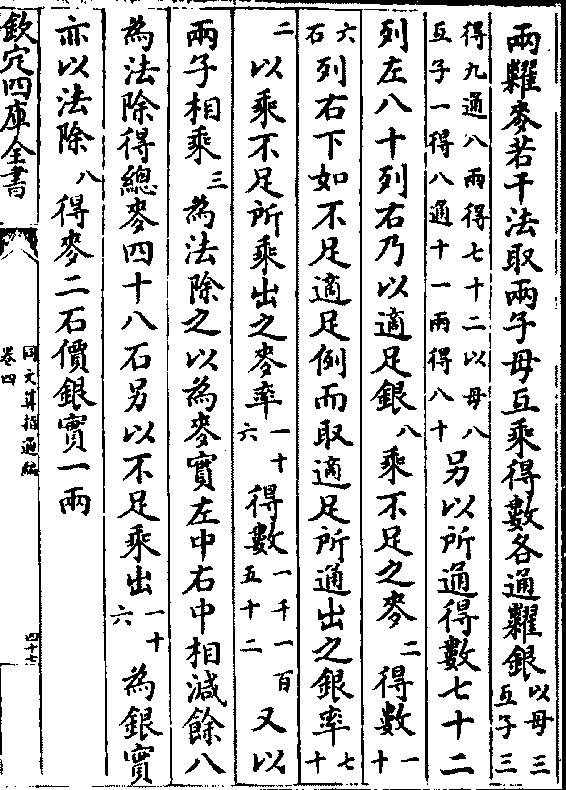 兩糴麥若干法取兩子母互乘得數各通糴銀以母三互子三
得九通八兩得七十二以母八互子一得八通十一兩得八十另以所通得數七十二
列左八十列右乃以適足銀八乘不足之麥二得數一十
六石列右下如不足適足例而取適足所通出之銀率七十
二以乘不足所乘出之麥率一十六得數一千一百五十二又以
兩子相乘三為法除之以為麥實左中右中相減餘八
為法除得總麥四十八石另以不足乘出一十六為銀實
亦以法除八得麥二石價銀實一兩
欽定四庫全書
同文算指通編
卷四
四十七